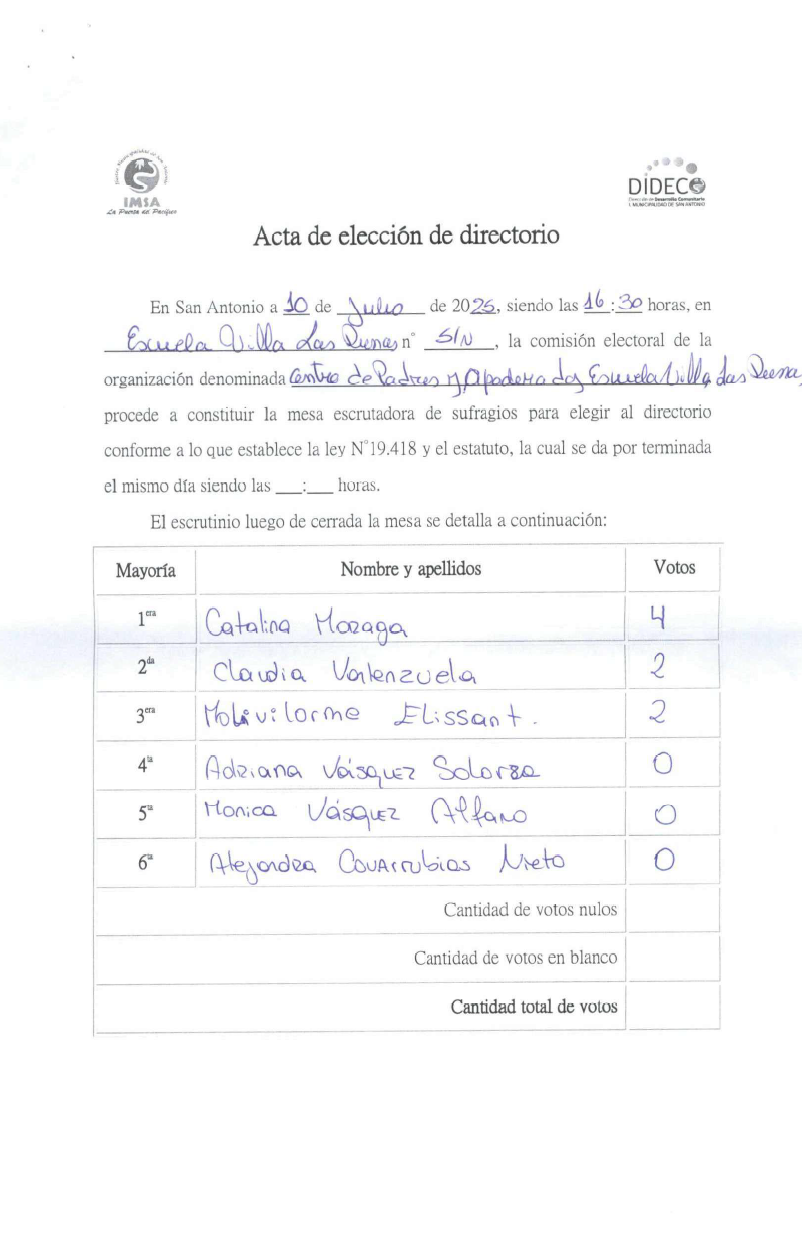 IMSA
La Puerta del Pacífico
DIDECO
Dirección de Desarrollo Comunitario
I. MUNICIPALIDAD DE SAN ANTONIO
Acta de elección de directorio
En San Antonio a 10 de Julio de 2025, siendo las 16:30 horas, en
Escuela Villa Las Dunas n° S/N, la comisión electoral de la
organización denominada Centro de Padres y Apoderados Escuela Villa Las Dunas,
procede a constituir la mesa escrutadora de sufragios para elegir al directorio
conforme a lo que establece la ley N°19.418 y el estatuto, la cual se da por terminada
el mismo día siendo las ___:___ horas.
El escrutinio luego de cerrada la mesa se detalla a continuación:
Mayoría Nombre y apellidos Votos
1era Catalina Moraga 4
2da Claudia Valenzuela 2
3era Elissant. 2
4ta Adriana Vásquez 0
5ta Monica Vásquez Alfaro 0
6ta Alejandra Covarrubias Nieto 0
Cantidad de votos nulos
Cantidad de votos en blanco
Cantidad total de votos